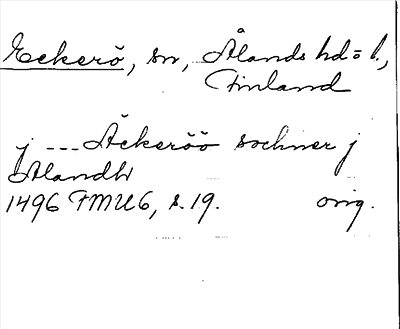 Eckerö, sn, Ålands hd=l.,
Finland
j --- Äckeröö sochner j
Alandh
1496 FMU6, s. 19. orig.